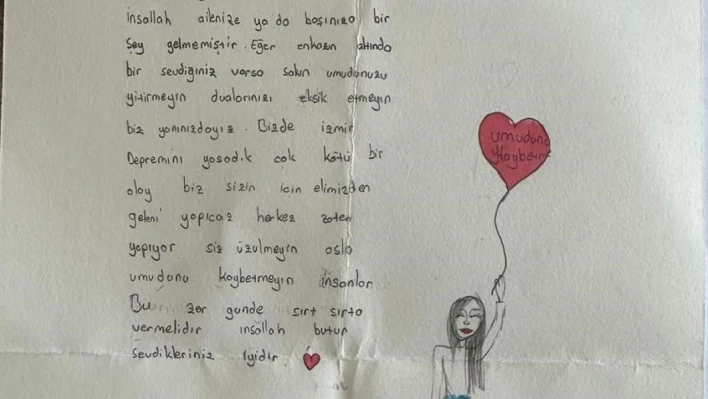 insallah ailenize ya da başınıza bir
Şey gelmemiştir. Eğer enkazın altında
bir sevdiğiniz varsa sakın umudunuzu
yitirmeyin dualarınızı eksik etmeyin
biz yanınızdayız. Bizde izmir
Depremini yaşadık çok kötü bir
olay biz sizin için elimizden
geleni yapıcaz herkez zaten
yapıyor siz üzülmeyin asla
umudunu kaybetmeyin insanlar
Bu zor günde sırt sırta
vermelidir insallah butun
sevdikleriniz iyidir.
umudunu
Kaybetme